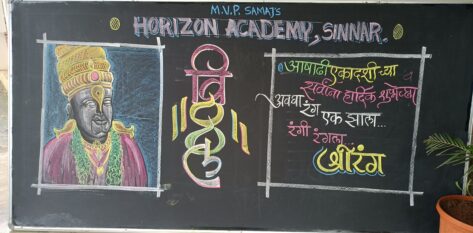 M.V.P. SAMAJ'S
HORIZON ACADEMY, SINNAR.
॥ विठ्ठल ॥
आषाढी एकादशीच्या
सर्वांना हार्दिक शुभेच्छा
अवघा रंग एक झाला...
रंगी रंगला
श्रीरंग